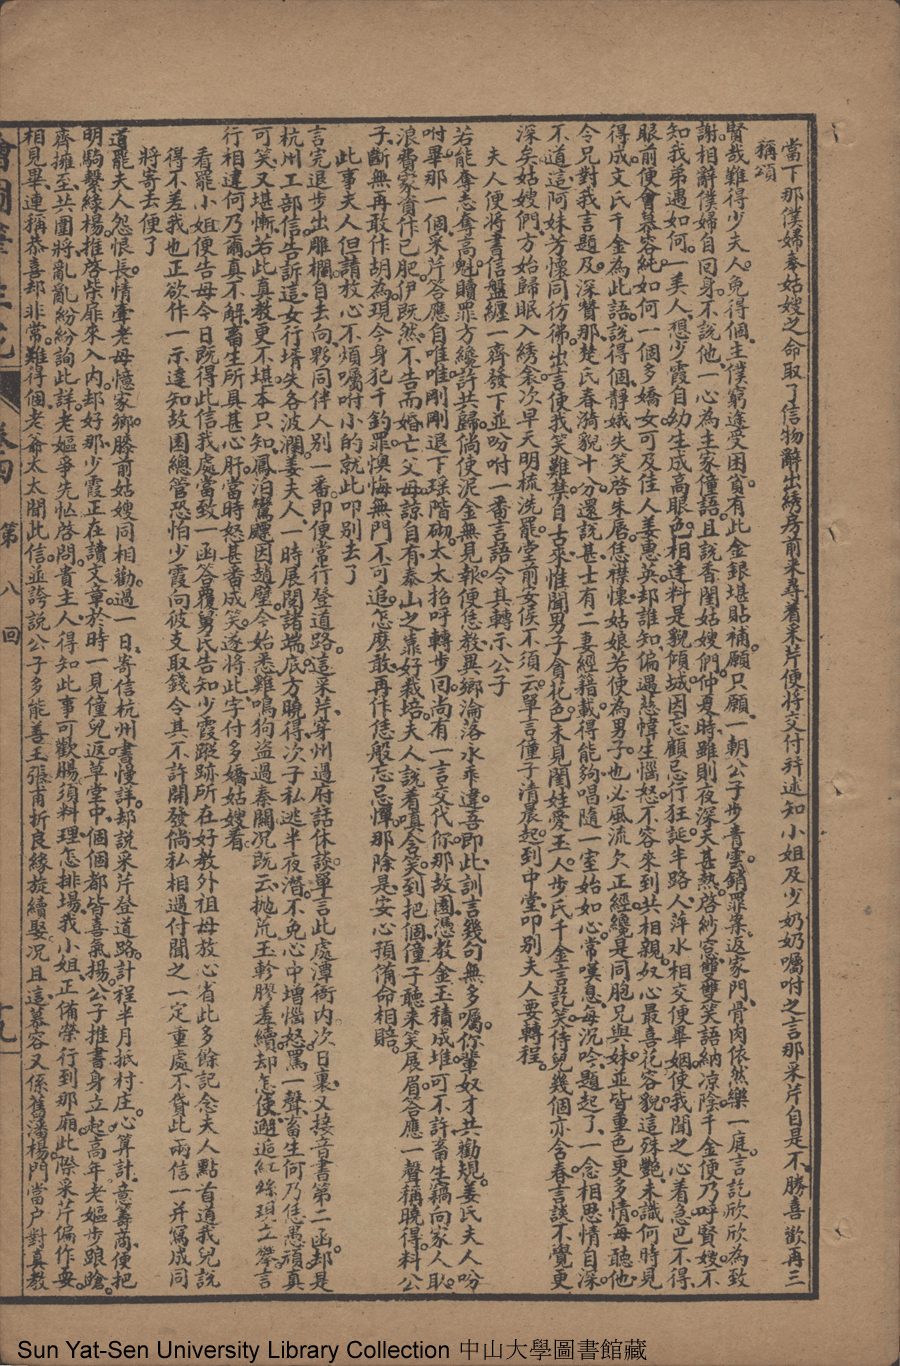 當下那僕婦奉姑嫂之命取了信物辭出綉房前來尋着采芹便將交付幷述知小姐及少奶奶囑咐之言那采芹自是不勝喜歡再三
稱頌
賢哉難得少夫人免得個主僕窮途受困貧有此金銀堪貼補願只願一朝公子步青雲銷罪案返家門骨肉依然樂一庭言訖欣欣為致
謝相辭僕婦自回身不說他一心為主家僮語且說香閨姑嫂們仲夏時雖則夜深天甚熱啓紗窓雙雙笑語納凉陰千金便乃呼賢嫂不
知我弟遇如何一美人想少霞自幼生成高眼色相逢料是貌傾城因忘顧忌行狂誕半路人萍水相交便畢姻使我聞之心着急巴不得
眼前便會慕容純如何一個多嬌女可及佳人姜蕙英却誰知偏遇慈幃生惱怒不容來到共相親奴心最喜花容貌這殊艷未識何時見
得成文氏千金為此語說得個靜娥失笑啓朱唇恁襟懷姑娘若使為男子也必風流欠正經纔是同胞兄與妹並皆重色更多情每聽他
令兄對我言題及深贊那楚氏春漪貌十分還說甚士有二妻經籍載得能夠唱隨一室始如心常嘆息每沉吟題起了一念相思情自深
不道這阿妹芳懷同彷彿出言使我笑難禁自古來惟聞男子貪花色未見閨娃愛玉人步氏千金言訖笑侍兒幾個亦含春言談不覺更
深矣姑嫂們方始歸眠入綉衾次早天明梳洗罷堂前安侯不須云單言僮子清晨起到中堂叩别夫人要轉程
夫人便將書信盤纏一齊發下並吩咐一番言語令其轉示公子
若能奪志奪高魁贖罪方纔許共歸倘使泥金無見報便恁教異鄉淪落永乖違吾即此訓言幾句無多囑你輩奴才共勸規姜氏夫人吩
咐畢那一個采芹答應自唯唯剛剛退下瑤階砌太太招呼轉步回尚有一言交代你那故園憑教金玉積成堆可不許畜生竊向家人取
浪費家資作已肥伊既然不告而婚亡父母諒自有泰山之靠好栽培夫人說着嗔含笑到把個僮子聽來笑展眉答應一聲稱曉得料公
子斷無再敢作胡為現今身犯千鈞罪懊悔無門不可追怎麼敢再作恁般忘忌憚那除是安心預備命相賠
此事夫人但請放心不煩囑咐小的就此叩别去了
言完退步出雕欄自去向夥同伴人别一番即便常行登道路這采芹穿州過府話休談單言此處潭衙内次日裏又接音書第二函却是
杭州工部信告訴這女行壻失各波瀾姜夫人一時展閱諸端底方曉得次子私逃半夜潛不免心中增惱怒罵一聲畜生何乃恁愚頑真
可笑又堪慚若此真教更不堪本只知鳳泊鸞飄因趙璧今始悉雞鳴狗盜過秦關况既云拋荒玉軫膠羞續却怎便邂逅紅絲瑱立攣言
行相違何乃爾真不解畜生所具甚心肝當時怒甚番成笑遂將此字付多嬌姑嫂看
看罷小姐便告母今日既得此信我處當致一函答覆舅氏告知少霞蹤跡所在好教外祖母放心省此多餘記念夫人點首道我兒說
得不差我也正欲作一示達知故園總管恐怕少霞向彼支取錢令其不許開發倘私相過付聞之一定重處不貸此兩信一并寫成同
將寄去便了
道罷夫人怨恨長情牽老母憶家鄉膝前姑嫂同相勸過一日寄信杭州書慢詳却說采芹登道路計程半月抵村庄心算計意籌商便把
明駒繫緣楊推啓柴扉來入内却好那少霞正在讀文章於時一見僮兒返草堂中個個都皆喜氣揚公子推書身立起高年老嫗步踉蹌
齊擁至共圍將亂亂紛紛詢此詳老嫗爭先忙啓問貴主人得知此事可歡腸須料理怎排場我小姐正備榮行到那廂此際采芹偏作耍
相見畢連稱恭喜却非常難得個老爺太太聞此信並誇說公子多能善主張甫折良緣旋續娶况且這慕容又係舊潘楊門當户對真教
繪圖筆生花
卷四
第八回
十九
Sun Yat-Sen University Library Collection 中山大學圖書館藏